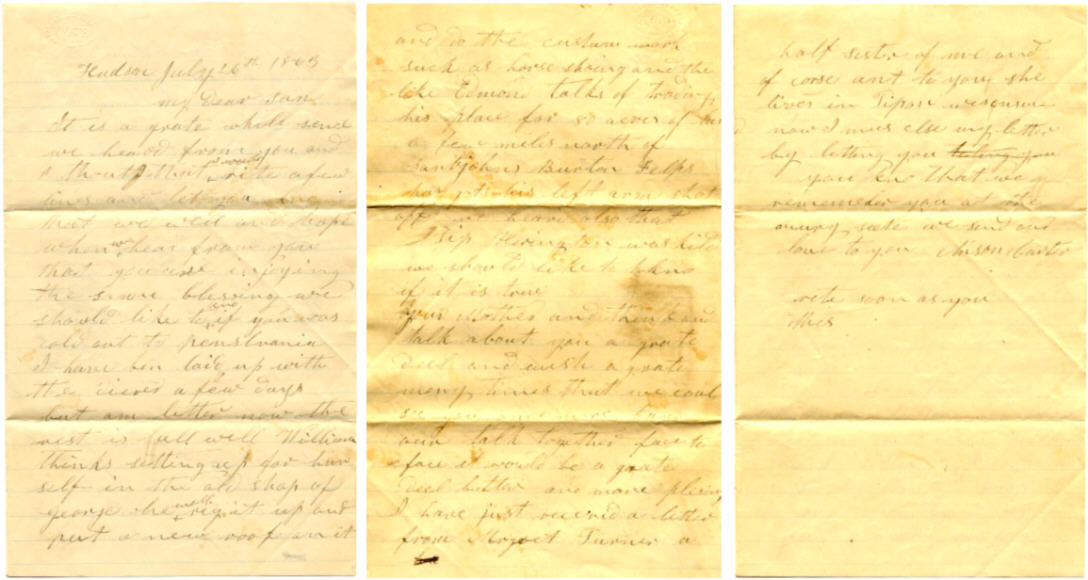 Hudson July 26th 1863
my Dear Son
It is a grate while send
we heard from you and
I thout that I would rite a few
lines and let you
that we well and hope
when we hear from you
that you are injoying
the same blessing we
should like to if you was
cold out to pensylvania
I have ben laid up with
the a few days
but am better now the
rest is full well William
thinks setting up for him
self in the old shop of
george he will rigit up and
put a new roof on it
and do the custum work
such as horse shoing and the
like Edmond talks of trading
his place for 80 acers of
a few miles north of
Santjohns Burton Felps
has his left arm shot
off we heard also that
was kild
we should like to kno
if it is true
your Mother and I think and
talk about you a grate
deel and wish a grate
meny times that we coul
see you
and talk together face to
face it would be a grate
Deel better and more
I have just received a letter
from Turner a
half sister of me and
of corse ant to you she
lives in wisconsin
now I mus close my letter
by letting you
you kno that we
rememeber you at the
we send our
love to you Carter
rite soon as you
this